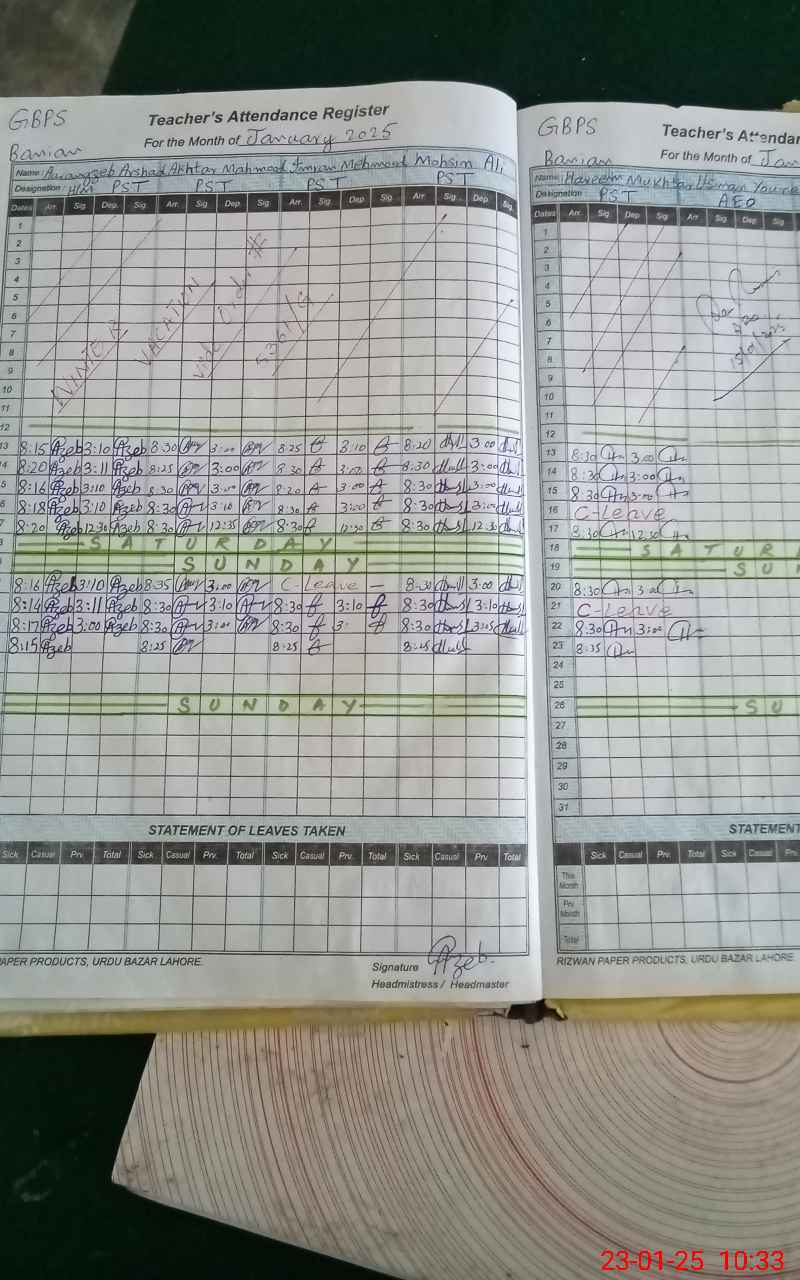 GBPS
Teacher's Attendance Register
For the Month of January 2025
Banian
Name: Aurangzeb Arshad Akhtar Mahmood Imran Mehmood Mohsin Ali
Designation: H/M PST PST PST PST
Dates Arr. Sig. Dep. Sig. Arr. Sig. Dep. Sig. Arr. Sig. Dep. Sig. Arr. Sig. Dep. Sig.
1
2
3
4
5
6
7
8
9
10
11
12
WINTER VACATION vide Order #
13 8:15 Azeb 3:10 Azeb 8:30 3:00 8:25 3:10 8:20 3:00
14 8:20 Azeb 3:11 Azeb 8:25 3:00 8:30 3:00 8:30 3:00
5 8:16 Azeb 3:10 Azeb 8:30 3:00 8:20 3:00 8:30 3:00
6 8:18 Azeb 3:10 Azeb 8:30 3:10 8:30 3:00 8:30 3:00
7 8:20 Azeb 12:30 Azeb 8:30 12:35 8:30 12:30 8:30 12:30
SATURDAY
SUNDAY
8:16 Azeb 3:10 Azeb 8:35 3:00 C-Leave – 8:30 3:00
8:14 Azeb 3:11 Azeb 8:30 3:10 8:30 3:10 8:30 3:10
8:17 Azeb 3:00 Azeb 8:30 3:00 8:30 3: 8:30 3:05
8:15 Azeb 8:25 8:25
SUNDAY
STATEMENT OF LEAVES TAKEN
Sick Casual Prv. Total Sick Casual Prv. Total Sick Casual Prv. Total Sick Casual Prv. Total
PAPER PRODUCTS, URDU BAZAR LAHORE.
Signature Azeb.
Headmistress / Headmaster
GBPS
Teacher's Attendar
For the Month of Jan
Banian
Name: Hareem Mukhtar Usman
Designation PST AEO
Dates Arr. Sig. Dep. Sig. Arr. Sig. Dep Sig
1
2
3
4
5
6
7
8
9
10
11
12
13 8:30 3:00
14 8:30 3:00
15 8:30 3:00
16 C-Leave
17 8:30 12:30
18 SATUR
19 SU
20 8:30 3:00
21 C-Leave
22 8:30 3:00
23 8:35
24
25
26 SU
27
28
29
30
31
STATEMENT
Sick Casual Prv. Total Sick Casual Prv.
This Month
Prv Month
Total
RIZWAN PAPER PRODUCTS, URDU BAZAR LAHORE.
23-01-25 10:33